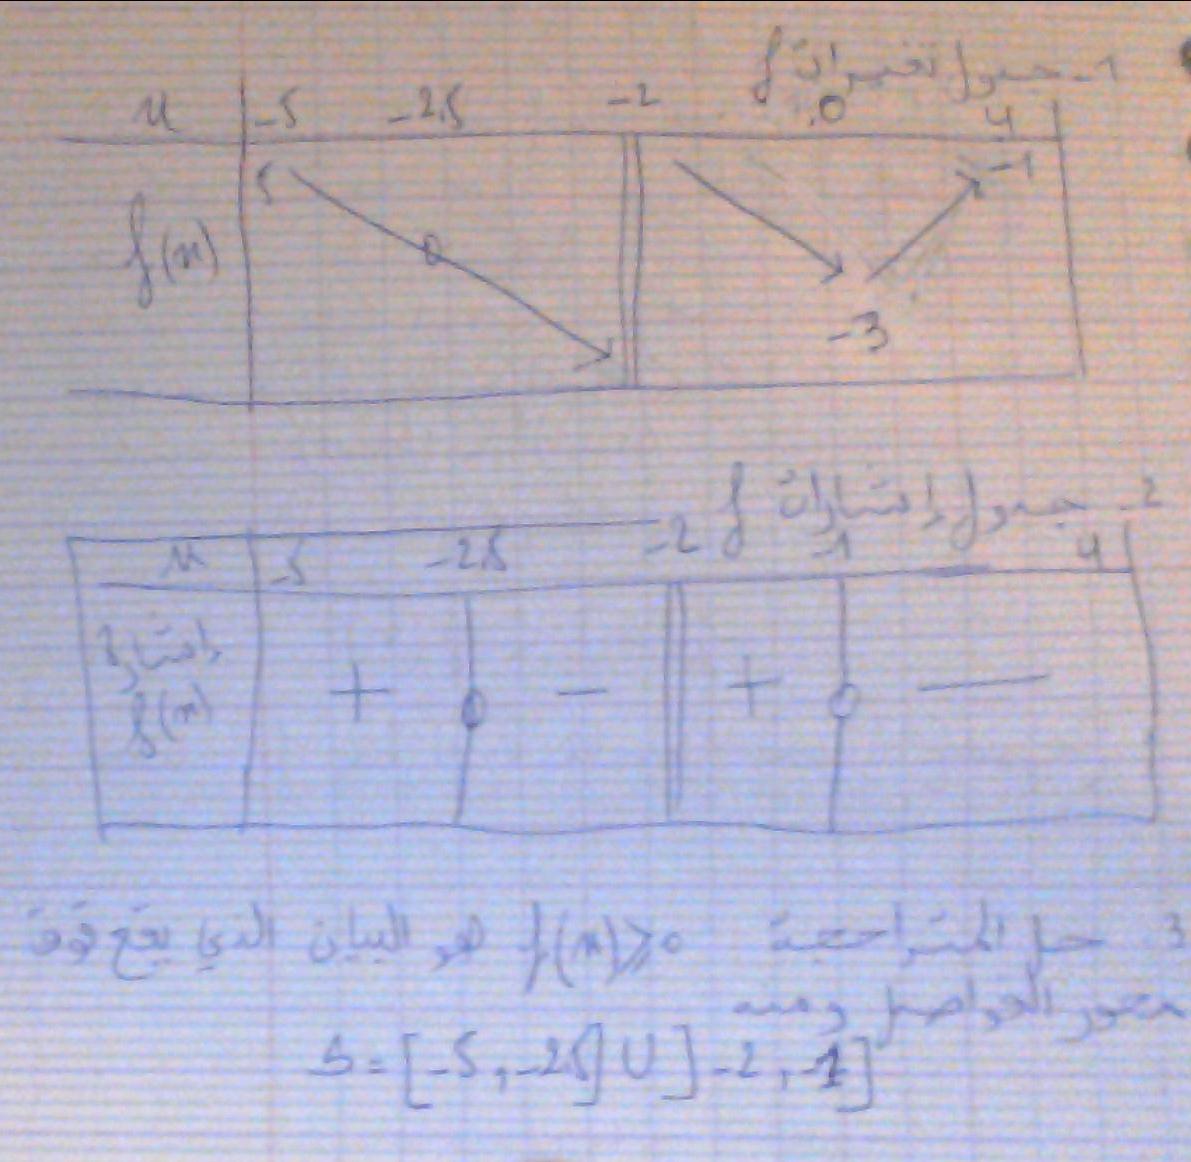 1- جدول تغيرات f
x -5 -2,5 -2 0 4
f(x) 5 0 -3 -1
2- جدول إشارات f
x -5 -2,5 -2 -1 4
إشارة + 0 - + 0 -
f(x)
3. حل المتراجحة f(x)⩾0 هو البيان الذي يقع فوق
محور الفواصل ومنه
S=[-5,-2,5]U]-2,-1]